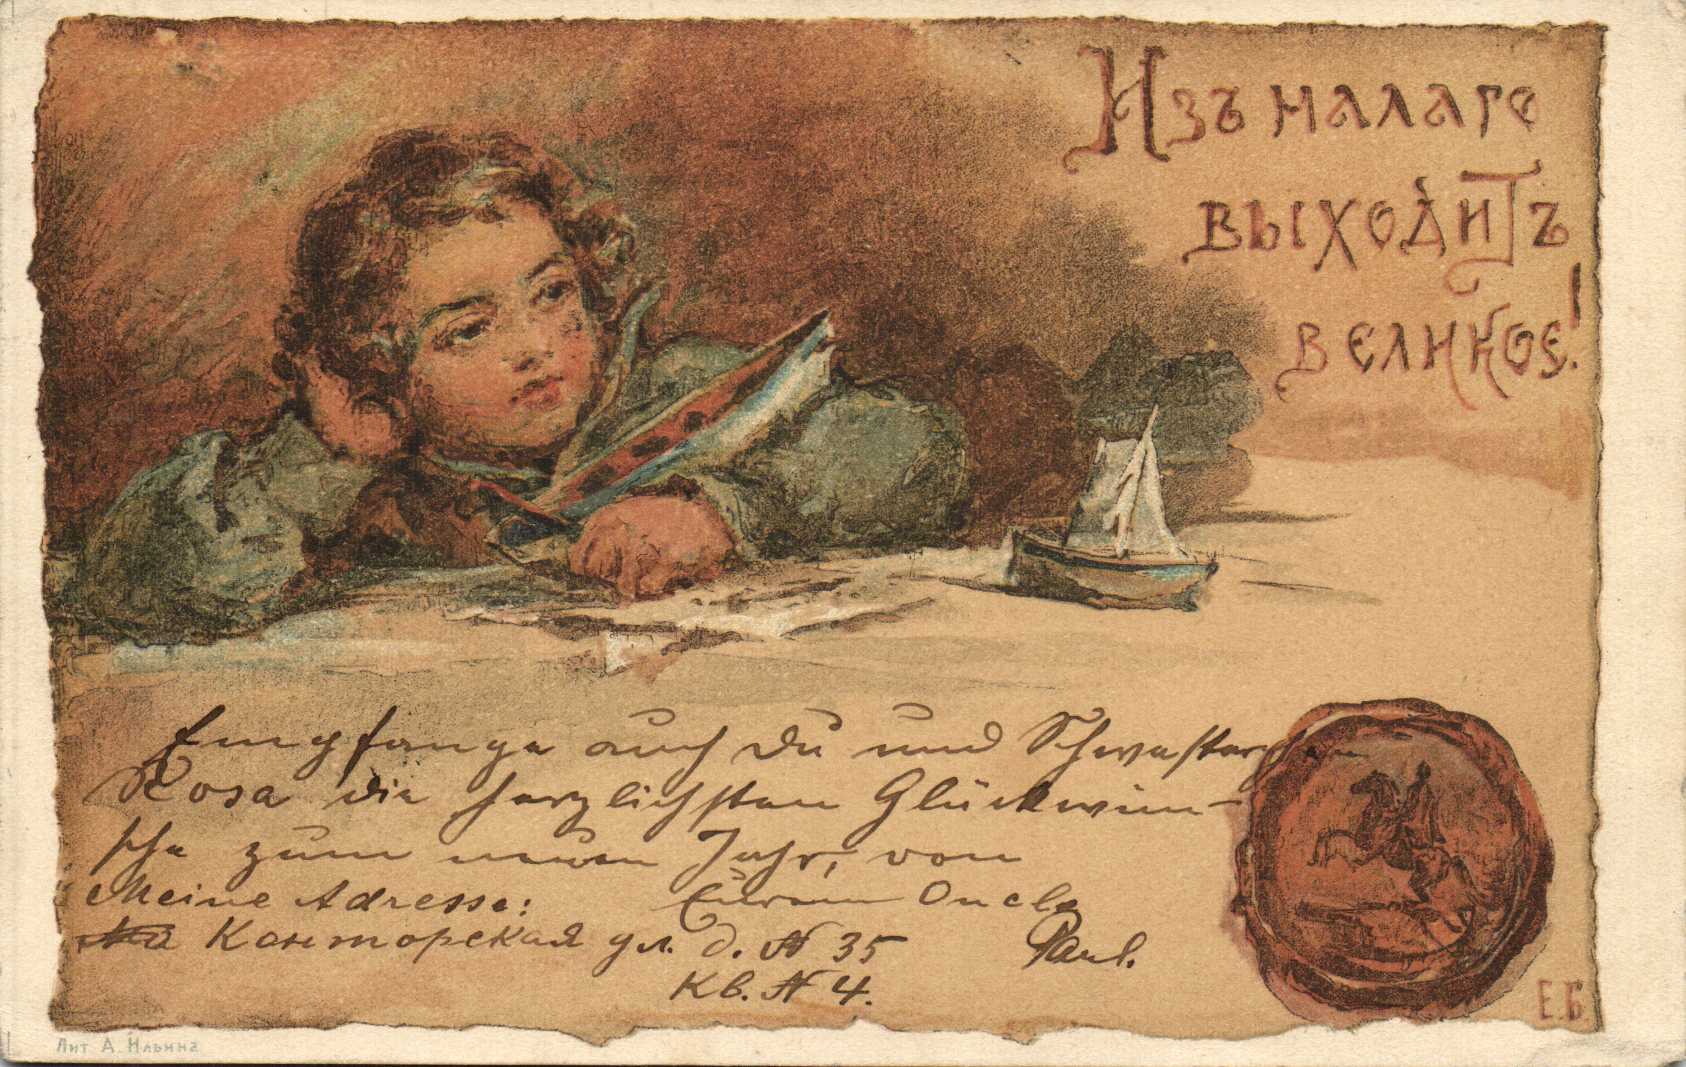 Изъ малаго
выходитъ
великое!
Empfange auch Du und Schwesterchen
Rosa die herzlichsten Glückwün-
sche zum neuen Jahr, von
Meine Adresse: Eurem Oncle
Конторская ул. д. № 35 Paul.
Кв. № 4.
Е.Б.
Лит А. Ильина